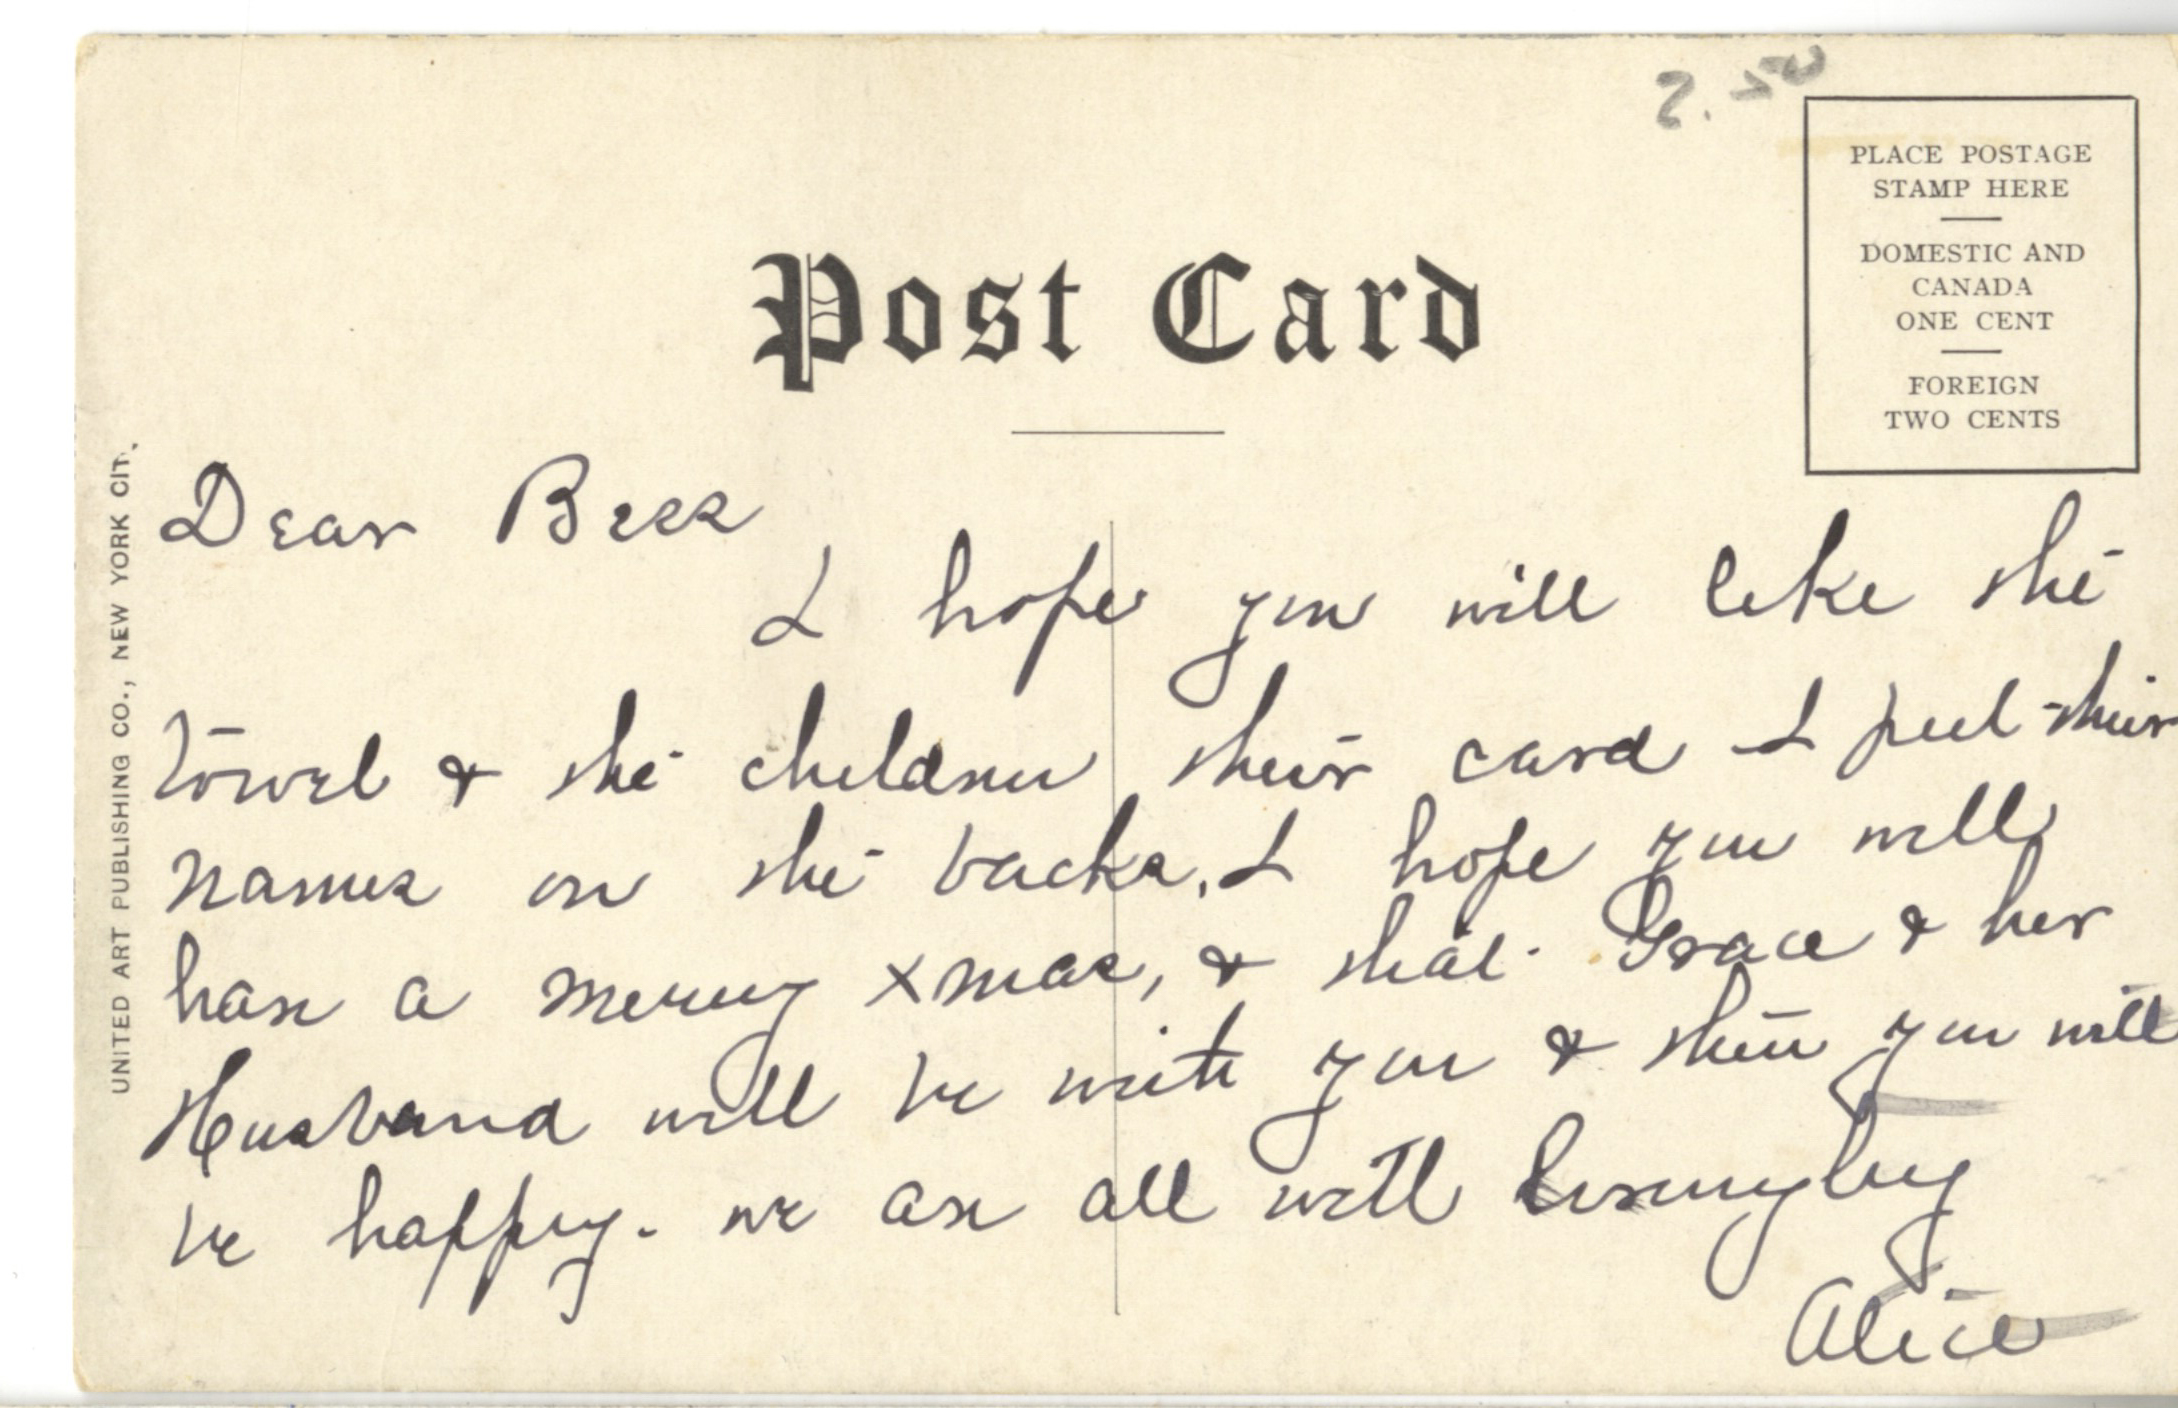 2.50
PLACE POSTAGE
STAMP HERE
DOMESTIC AND
CANADA
ONE CENT
FOREIGN
TWO CENTS
Post Card
UNITED ART PUBLISHING CO., NEW YORK CITY.
Dear Bess
I hope you will like the
towel & the children their card I put their
names on the backs, I hope you will
have a merry xmas, & that Grace & her
Husband will be with you & then you will
be happy. we are all well
Alice